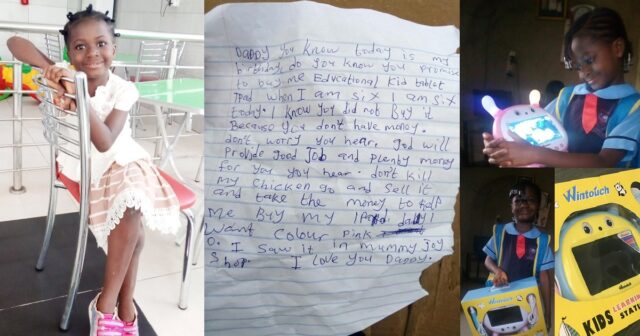 Daddy you know today is my
birthday do you know you promise
to buy me Educational Kid tablet
Ipad when I am six I am six
today. I know you did not buy it
Because you don't have money.
don't worry you hear. God will
provide good job and plenty money
for you you hear. don't kill
my chicken go and sell it
and take the money to
Me Buy my daddy I
Want Colour Pink
O. I saw it in mummy Joy
Shop. I love you Daddy.
Wintouch
Wintouch
KIDS LEARNING